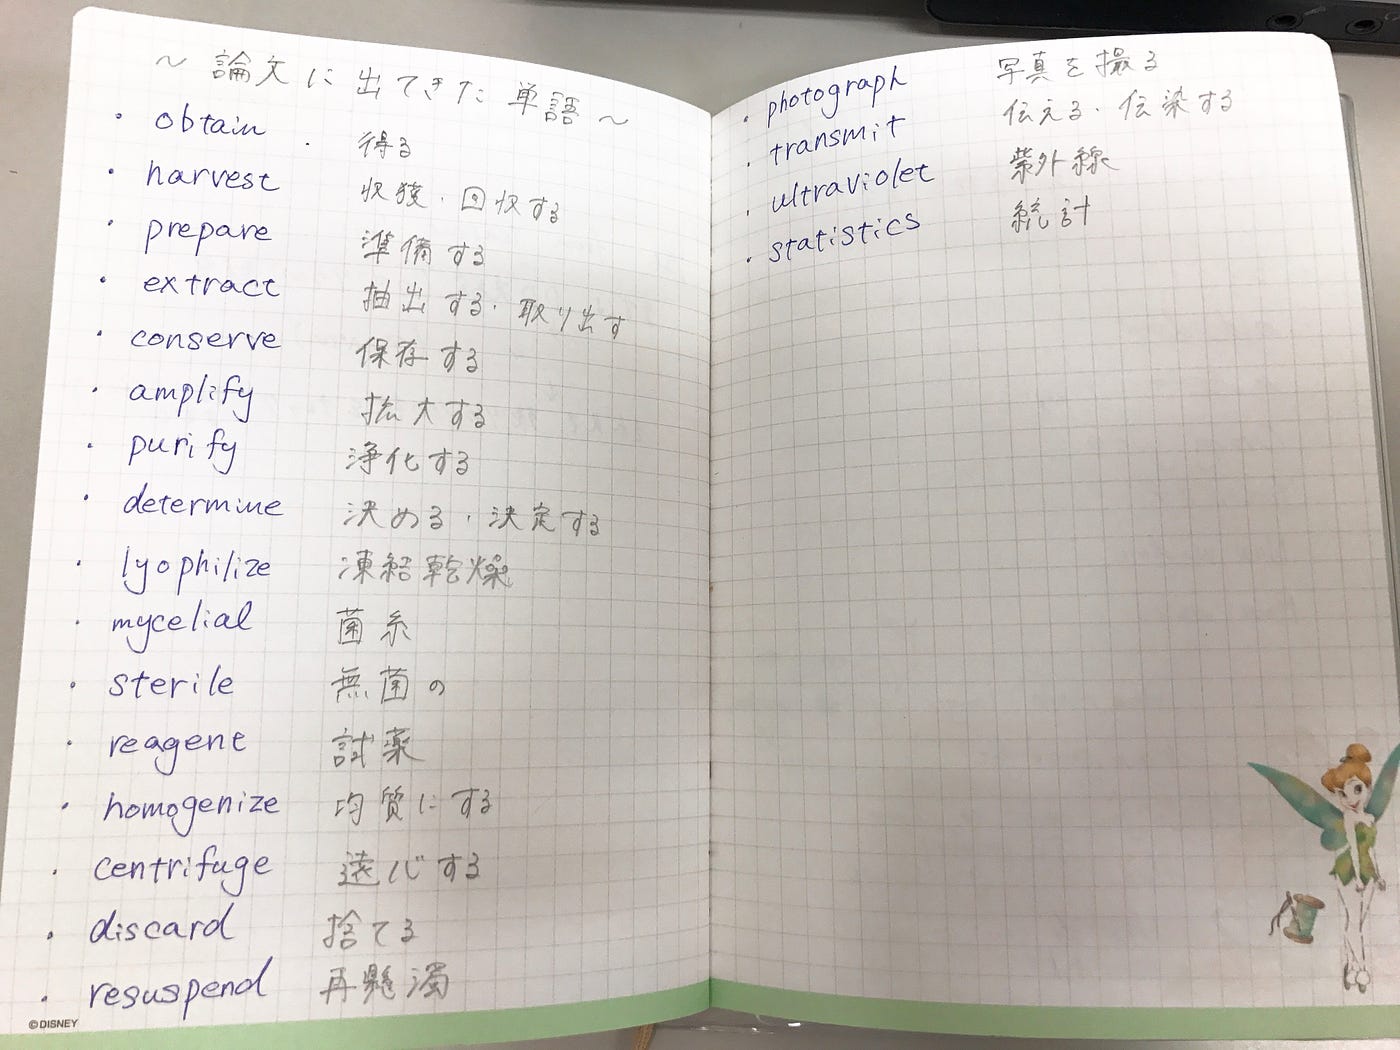 ~ 論文に出てきた単語 ~
・obtain ・得る
・harvest 収獲・回収する
・prepare 準備する
・extract 抽出する・取り出す
・conserve 保存する
・amplify 拡大する
・purify 浄化する
・determine 決める・決定する
・lyophilize 凍結乾燥
・mycelial 菌糸
・sterile 無菌の
・reagent 試薬
・homogenize 均質にする
・centrifuge 遠心する
・discard 捨てる
・resuspend 再懸濁
©DISNEY
・photograph 写真を撮る
・transmit 伝える・伝染する
・ultraviolet 紫外線
・statistics 統計